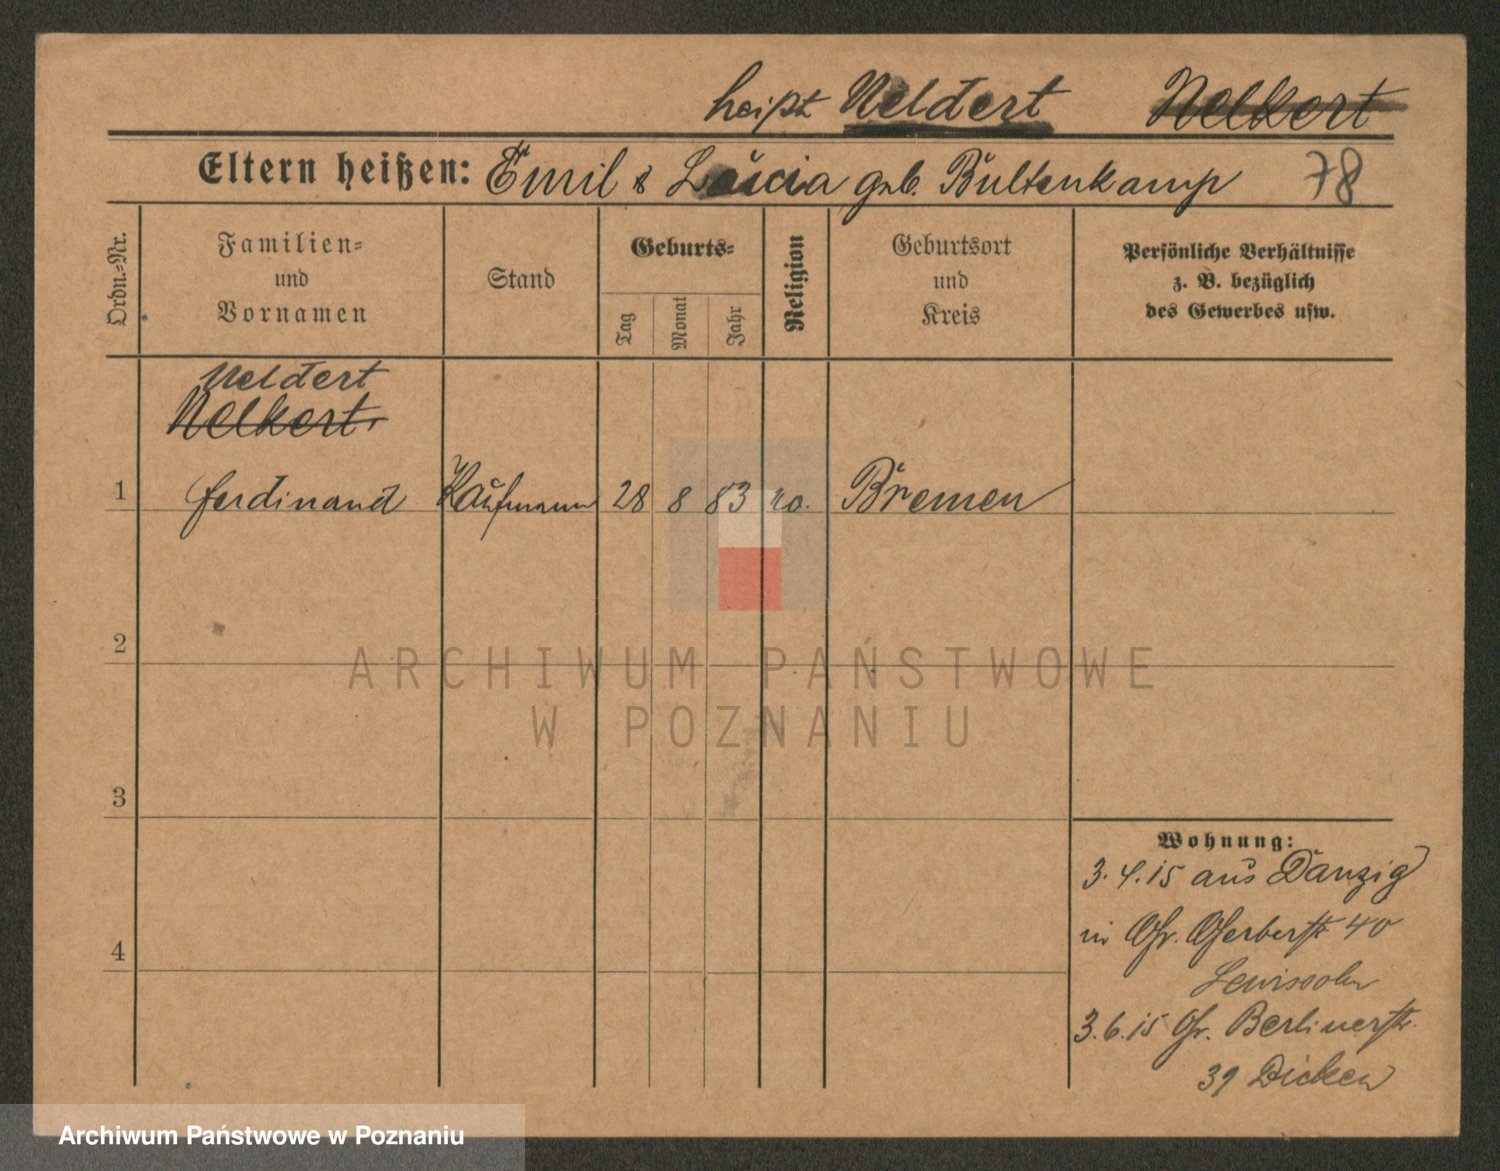 heißt Neldert Nelkert
Eltern heißen: Emil & Lucia geb. Bultenkamp 78
Ordn.-Nr.
Familien-
und
Vornamen
Stand
Geburts-
Tag
Monat
Jahr
Religion
Geburtsort
und
Kreis
Persönliche Verhältnisse
z. B. bezüglich
des Gewerbes usw.
Neldert
Nelkert
1 Ferdinand Kaufmann 28 8 83 Bremen
2
ARCHIWUM PAŃSTWOWE
W POZNANIU
3
Wohnung:
3.4.15 aus Danzig
4
in Gr. Gerberstr 40
Lewissohn
3.6.15 Gr. Berlinerstr.
39 Dicken
Archiwum Państwowe w Poznaniu